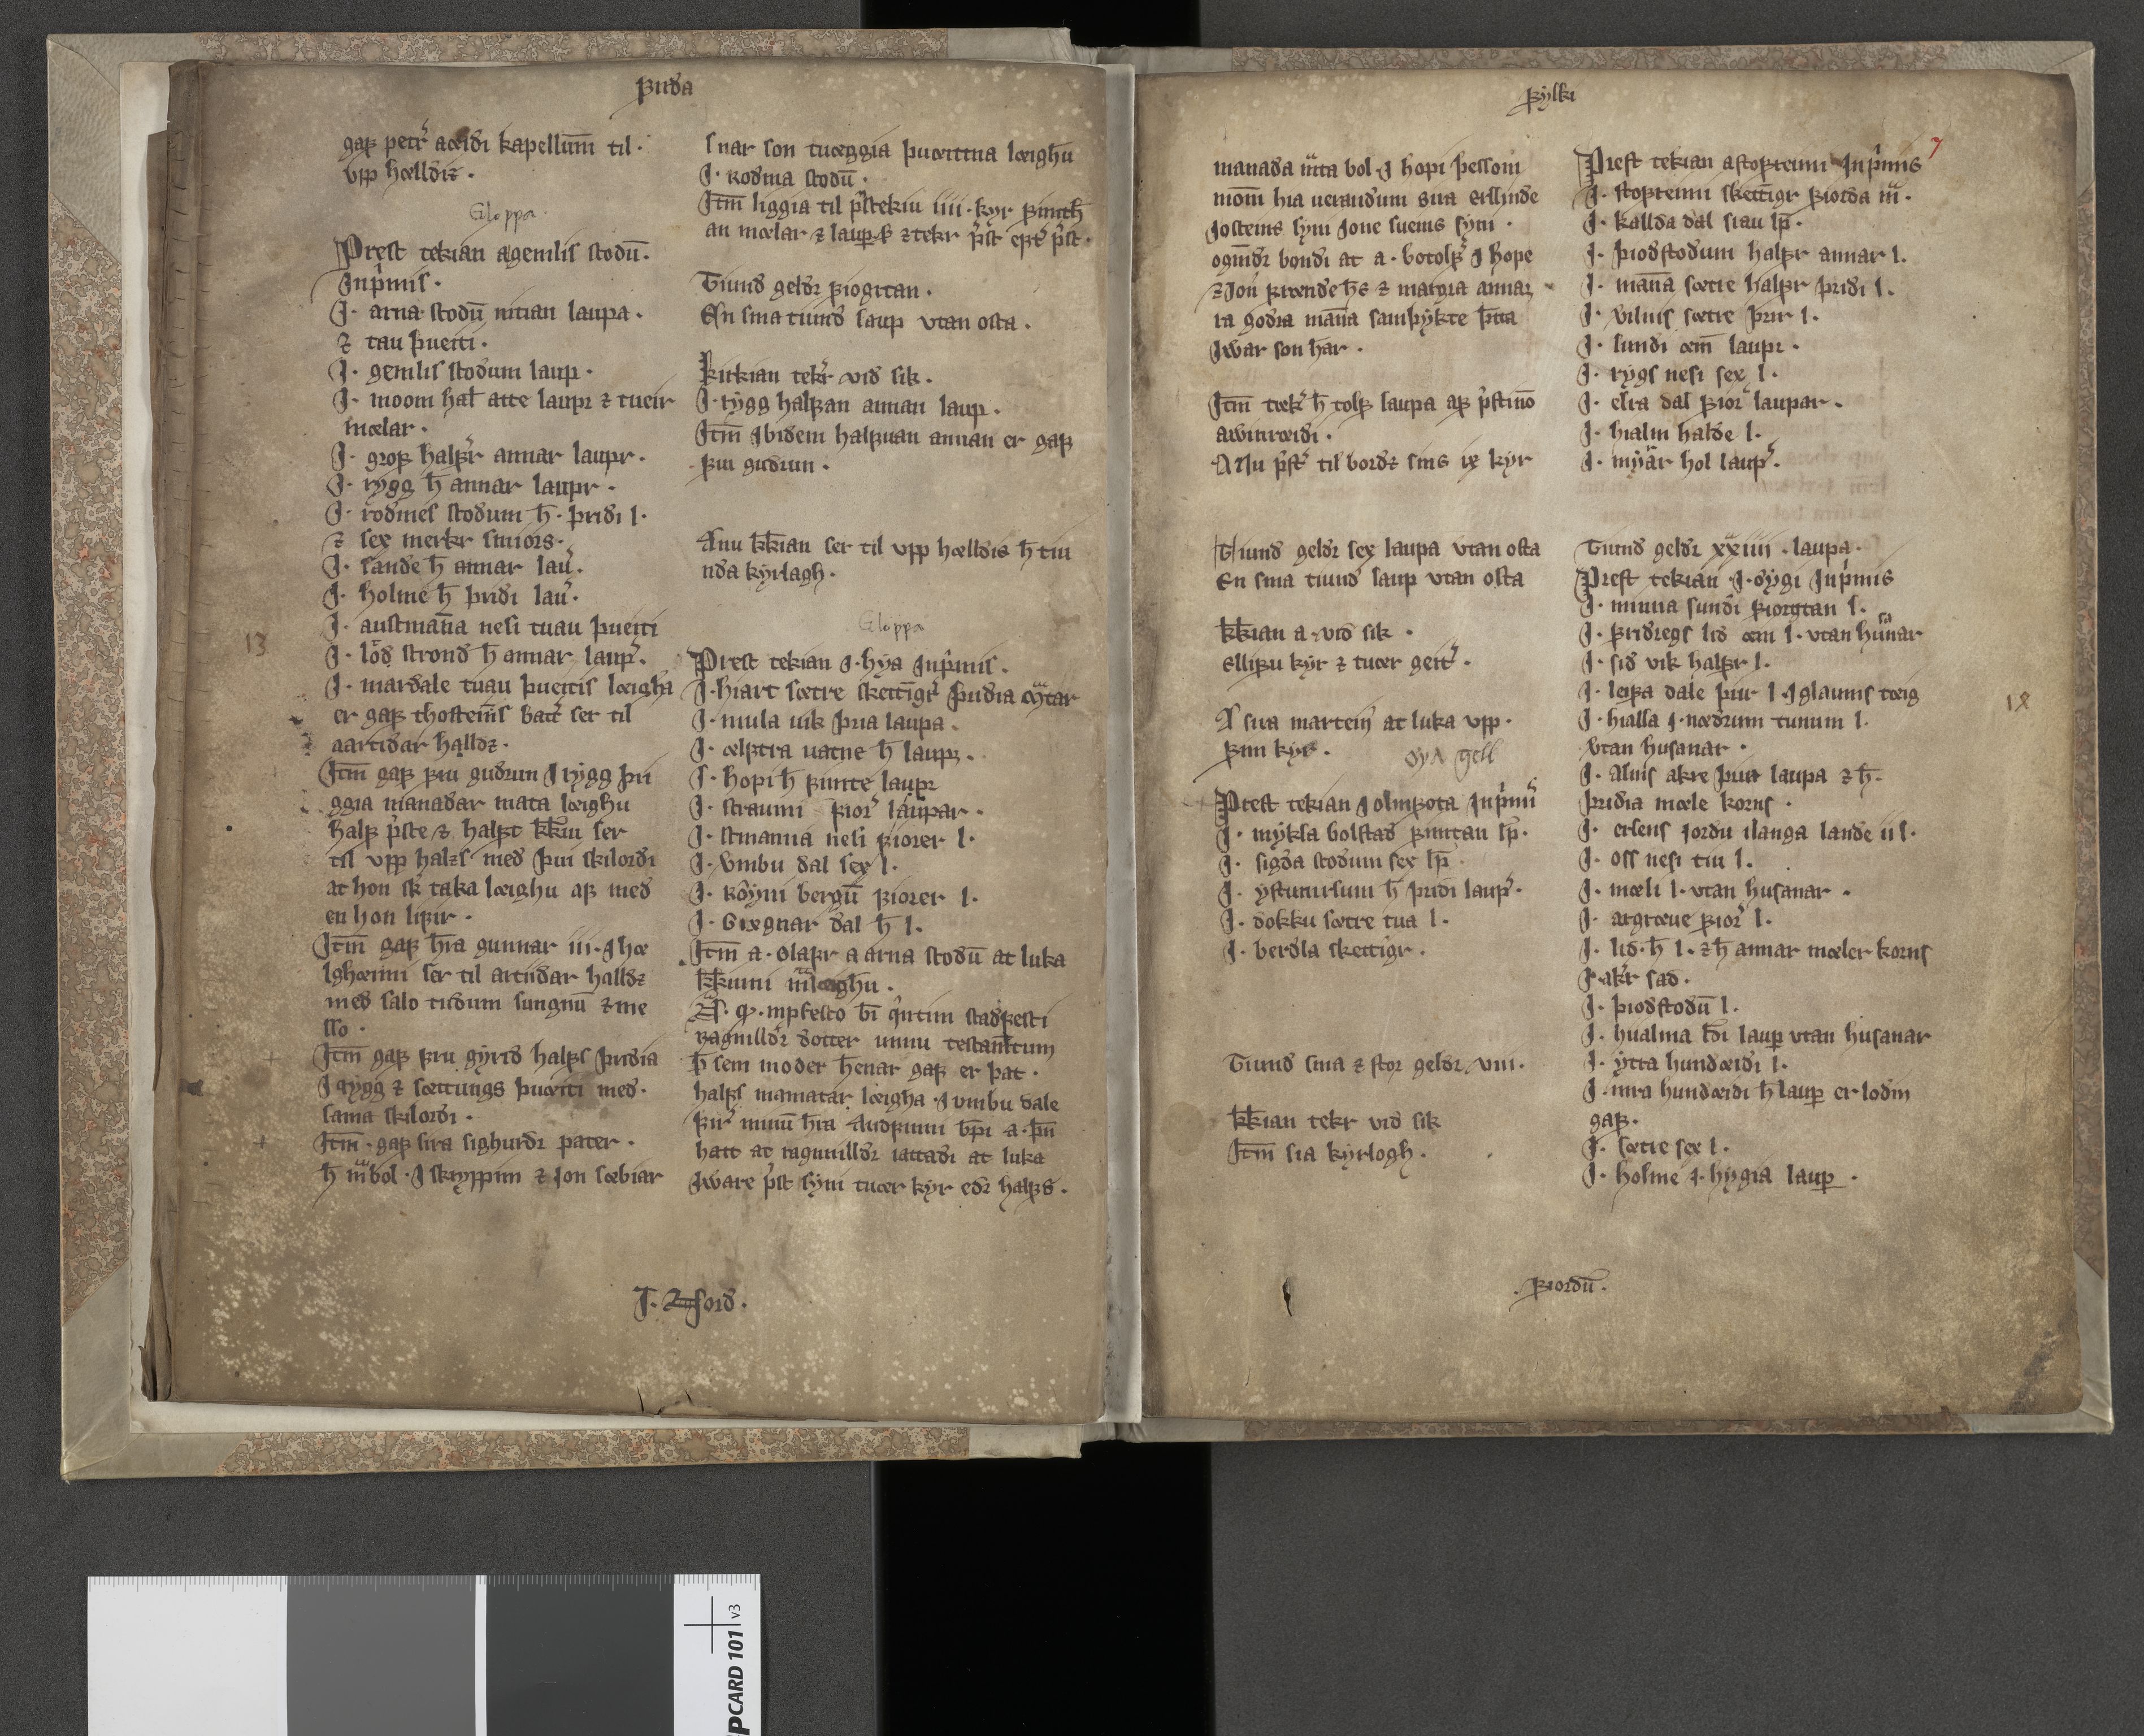 ꝼirða
gaꝼ petr aœidi kapellum̄ til ·
vpp hœlldiz ·
Gloppa
Prest tekian agemlis stodū ·
Jnp'mis ·
J · arna stodū nitian laupa ·
⁊ tau þueiti ·
J · gemlis stodum laup ·
J · moom hal atte laupr ⁊ tueir
mœlar ·
J · groꝼ halꝼr annar laupr ·
J · rygg h̄ annar laupr ·
J · rodmes stodum h̄ · þridi l ·
⁊ sex merkr smiors ·
J · sande h̄ annar lau ·
J · holme h̄ þridi lau ·
J · austman̄a nesi tuau þueiti
J · lod strond h̄ annar laup ·
J · mardale tuau þueitis lœigha
er gaꝼ thosteins batr ser til
aartidar halldz ·
Jtm̄ gaꝼ ꝼru gudrun J rygg þri
ggia manadar mata lœighu
halꝼ p'ste ⁊ halꝼt kk̄iu ser
til vpp halzs med þui skilordi
at hon sk taka lœighu aꝼ med
en hon liꝼir ·
Jtm̄ gaꝼ h̄ra gunnar iii · J hœ
lghœimi ser til artidar halldz
med salo tidum sungnū ⁊ me
sso ·
Jtm̄ gaꝼ ꝼru gyrid halꝼs þridia
J rygg ⁊ sœttungs þuœiti med ·
sama skilordi ·
Jtm̄ · gaꝼ sira sighurdr pater ·
h̄ m bol · J skryppin ⁊ Jon sœbiar
13
snar son tuœggia þuœitina lœighu
J · rodma stodū ·
Jtm̄ liggia til p'stekiu iiii · kyr ꝼimth̄
an mœlar ⁊ laup ⁊tekr p'st epꝉ p'st ·
Tiund geldr ꝼiogrtan ·
En sma tiund laup vtan osta ·
Kirkian tekr vid sik ·
J · rygg halꝼan annan laup ·
Jtm̄ Jbidem halꝼuan annan er gaꝼ
ꝼru gudrun ·
Ānu kk̄ian ser til vpp hœlldis h̄ tiu
nda kyrlagh ·
Gloppa
Prest tekian J · hya Jnp'mis ·
J · hiart sœtre skettingr þridia mtar
J · mula uik þria laupa ·
J · œlptra uatne h̄ laupr ·
J · hopi h̄ ꝼimte laupr
J · straumi ꝼior laupar ·
J · stmanna nesi ꝼiorer l ·
J · vmbu dal sex l ·
J · rôymi bergū ꝼiorer l ·
J · Gixgnar dal h̄ l ·
Jtm̄ a · olaꝼr a arna stodū at luka
kk̄iunni m lœighu ·
ragnilldr dotter unnu testam̄tum
þ sem moder h̄enar gaꝼ er þat ·
halꝼs mamatar lœigha · J vmbu dale
ꝼir munū h̄ra Audꝼinni b̄pi a · þn̄
hatt at ragnnilldr iattadi at luka
Jware p'st syni tuœr kyr edr halꝼs ·
J · Nord ·
ꝼylki
manada mta bol · J hopi þessom
mom̄ hia uerandum sira erllinde
Josteins syni Jone sueins syni ·
ogm̄dr bondi at a · botolꝼ J hope
ra godra man̄a samþykte þta
Jwar son har ·
Jtm̄ tœk h̄ tolꝼ laupa aꝼ p'stinō
awinrœidi ·
A Nu p'str til bordz sins ix kyr
Tiund geldr sex laupa vtan osta
En sma tiund laup vtan osta
kk̄ian a · vid sik ·
elliꝼu kyr ⁊ tuœr geitr ·
A sira martein at luka vpp ·
ꝼim kyr ·
Prest tekian J olmꝼota Jnp'mi
J · mykla bolstad ꝼimtan lp̄ ·
J · sigda stodum sex lp̄ ·
J · ystunrsum h̄ þridi laup ·
J · dokku sœtre tua l ·
J · berdla skettigr ·
Tiund sma ⁊ stor geldr viii ·
kk̄ian tekr vid sik
Jtm̄ sia kyrlogh ·
7
Prest tekian astoꝼteimi Jnp'mis
J · stoꝼteimi skettigr ꝼiorda m ·
J · kallda dal siau lp̄ ·
J · þiodstodum halꝼr annar l ·
J · man̄a sœtre halꝼr þridi l ·
J · vilnis sœtre þrir l ·
J · lundi œin laupr ·
J · rygs nesi sex l ·
J · elra dal ꝼior laupar ·
J · hialm halde l ·
J · myâr hol laup ·
Tiund geldr xxiiii · laupa ·
Prest tekian · J · dygi Jnp'mis
J · minna sundi ꝼiorgtan l ·
J · ꝼridregs lid œin l · vtan hunar
J · sid vik halꝼr l ·
J · leiꝼa dale þrir l · J glaums tœig
J · hialla J · nœdrum tunum l ·
vtan husanar ·
J · Aluis akre þria laupa ⁊ h̄ ·
þridia mœle korns ·
J · erlens jordu ilanga lande ii l ·
J · oss nesi tiu l ·
J · mœli l · vtan husanar ·
J · argrœue ꝼior l ·
J · lid · h̄ l · ⁊ h̄ annar mœler korns
J · akr sad ·
J · þiodstodū l ·
J · hualma b̄di laup vtan husanar
J · ytra hundœidi l ·
J · inra hundœidi h̄ laup er lodin
gaꝼ ·
J · sœtre sex l ·
J · holme J · hygia laup ·
18
· ꝼiordū ·